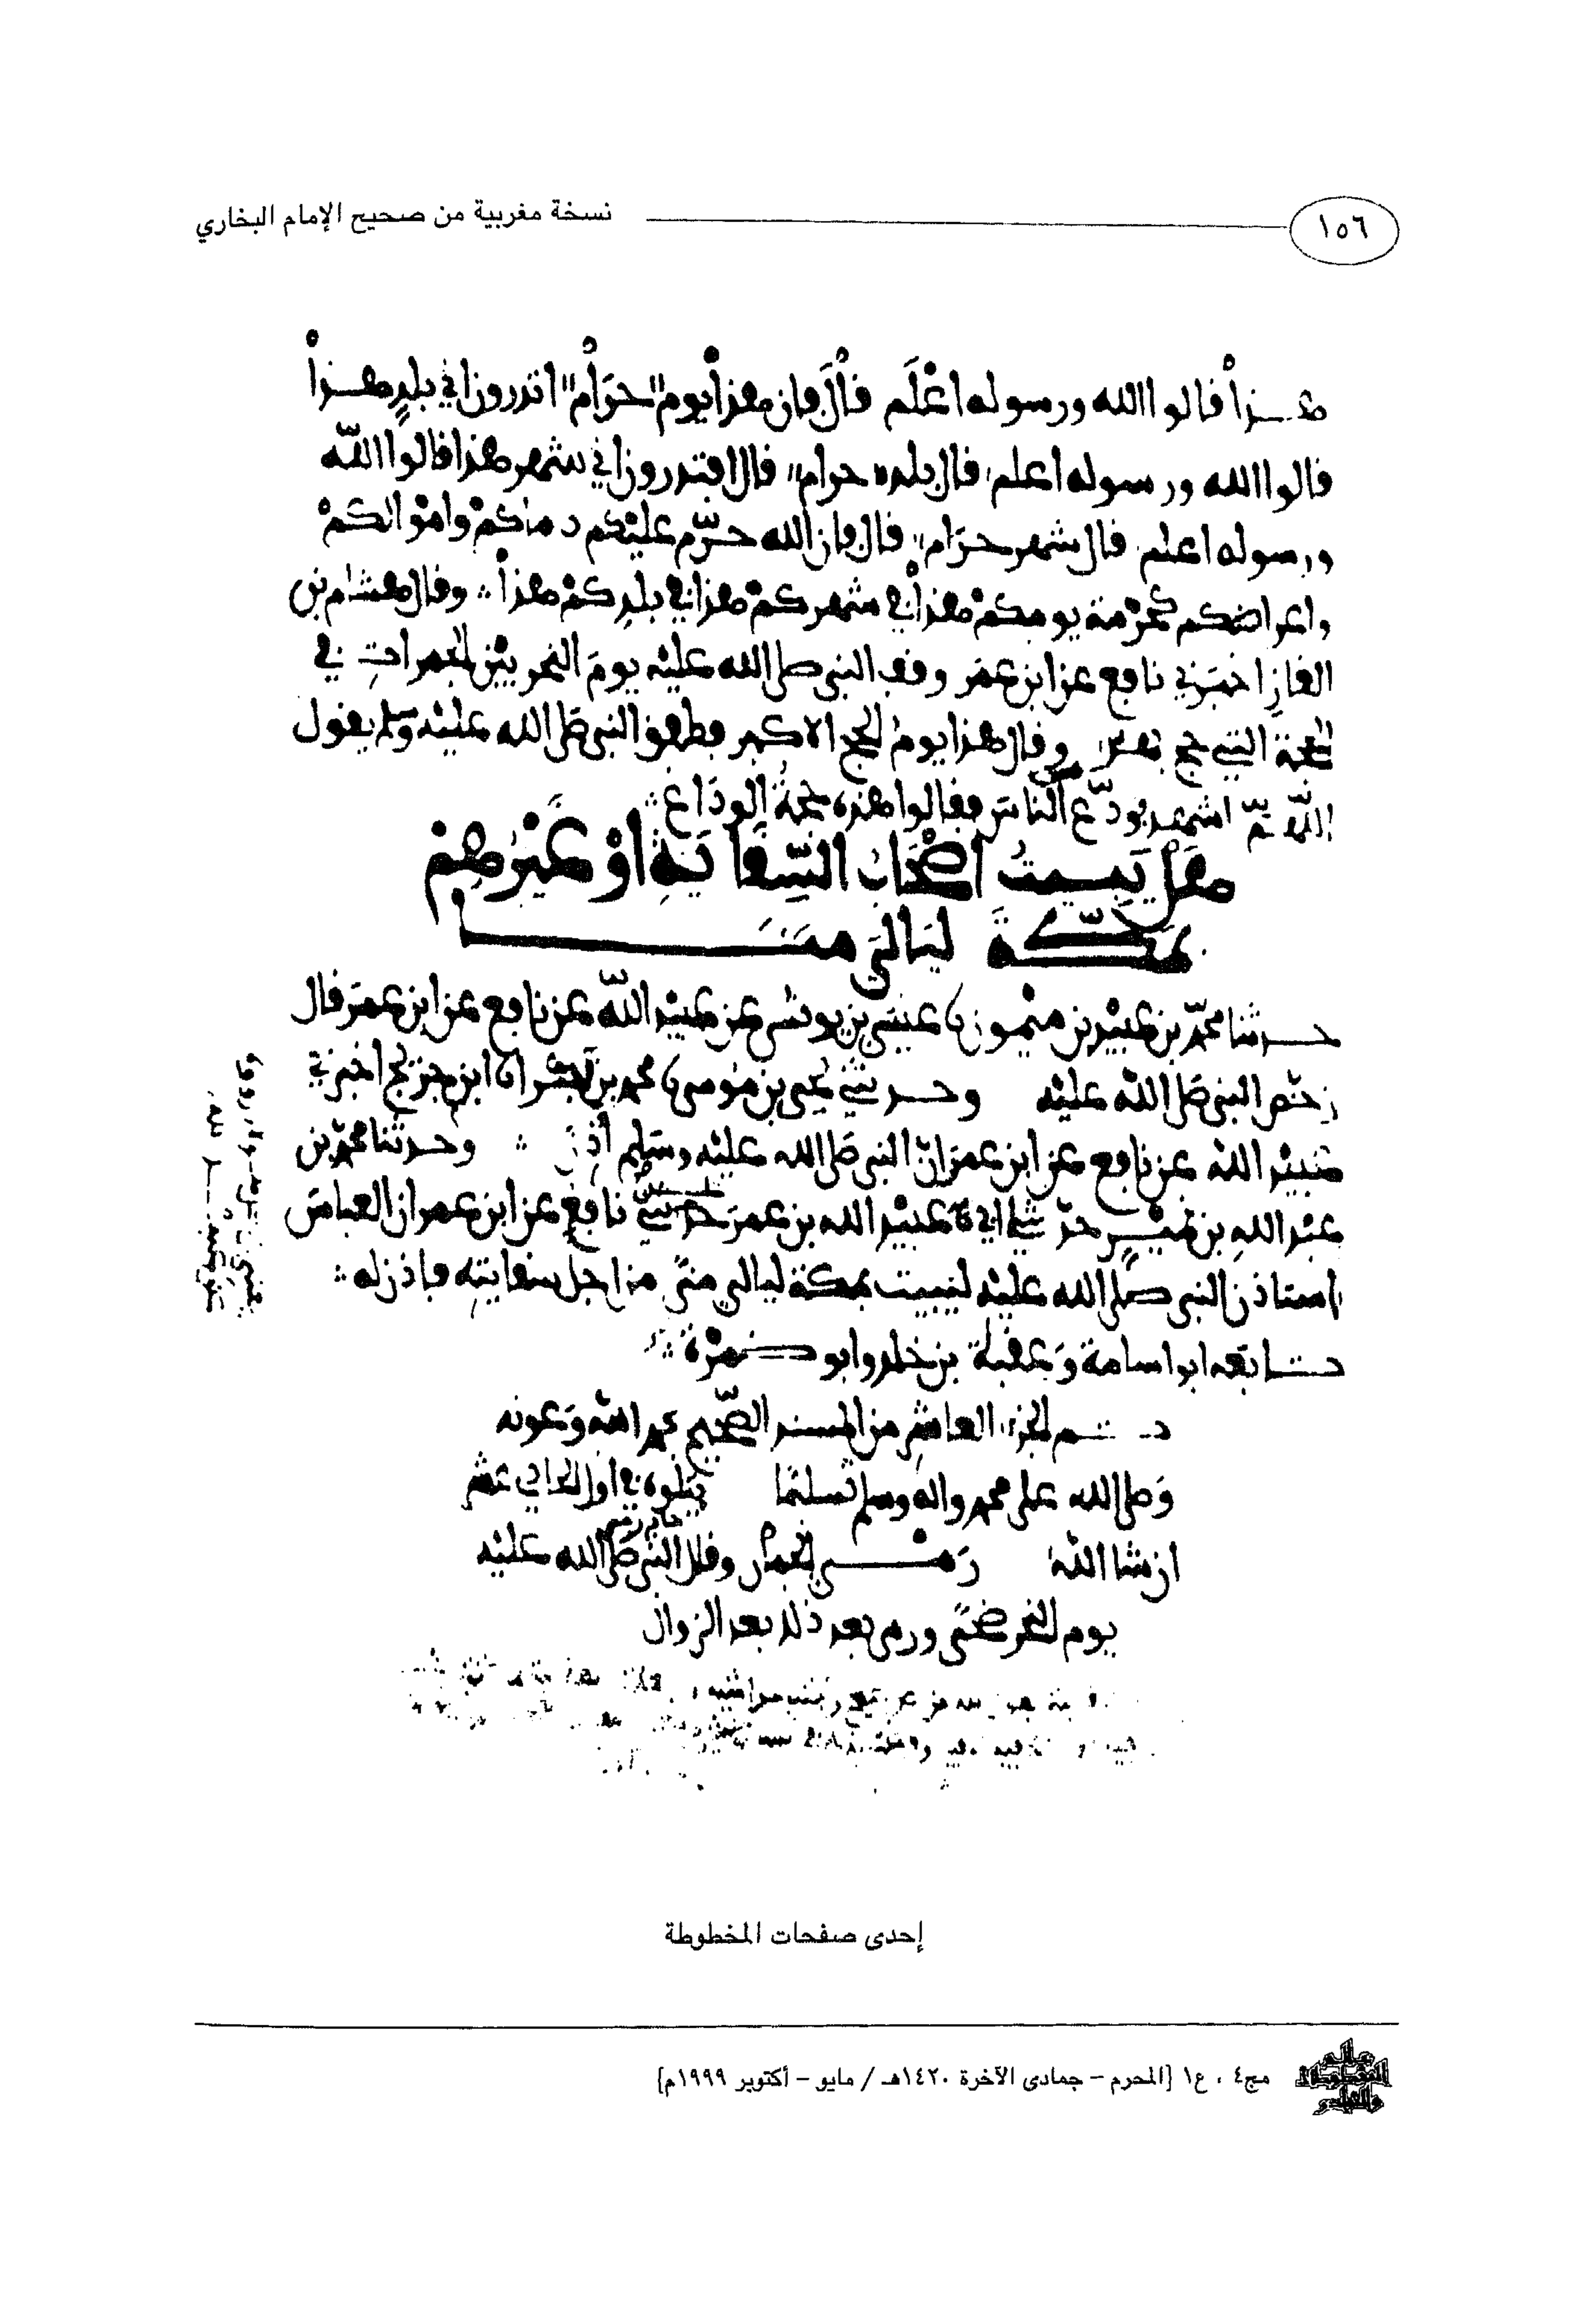 ١٥٦
نسخة مغربية من صحيح الإمام البخاري
هذا قالوا الله ورسوله اعلم قال فان هذا يوم حرام اتدرون اي بلد هذا
قالوا الله ورسوله اعلم قال بلد حرام قال افتدرون اي شهر هذا قالوا الله
ورسوله اعلم قال شهر حرام قال فان الله حرم عليكم دماكم واموالكم
واعراضكم كحرمة يومكم هذا في شهركم هذا في بلدكم هذا وقال هشام بن
الغاز اخبرني نافع عن ابن عمر وقف النبي صلى الله عليه يوم النحر بين الجمرات في
الحجة التي حج بهذا وقال هذا يوم الحج الاكبر فطفق النبي صلى الله عليه وسلم يقول
اللهم اشهد يودع الناس فقالوا هذه حجة الوداع
هل يبيت اصحاب السقاية او غيرهم
بمكة ليالي منى
حدثنا محمد بن عبيد بن ميمون نا عيسى بن يونس عن عبيد الله عن نافع عن ابن عمر قال
رخص النبي صلى الله عليه وحدثني يحيى بن موسى نا محمد بن بكر انا ابن جريج اخبرني
عبيد الله عن نافع عن ابن عمر ان النبي صلى الله عليه وسلم اذن وحدثنا محمد بن
عبد الله بن نمير حدثني ابي نا عبيد الله بن عمر حدثني نافع عن ابن عمر ان العباس
استاذن النبي صلى الله عليه ليبيت بمكة ليالي منى من اجل سقايته فاذن له
تابعه ابو اسامة وعقبة بن خلد وابو ضمرة
تم الجزء العاشر من المسند الصحيح بحمد الله وعونه
وصلى الله على محمد واله وسلم تسليما يتلوه في اول الحادي عشر
ان شا الله رمي الجمار وقال جابر رمى النبي صلى الله عليه
يوم النحر ضحى ورمى بعد ذلك بعد الزوال
إحدى صفحات المخطوطة
عالم المخطوطات والنوادر
مج٤ ، ع١ [المحرم – جمادى الآخرة ١٤٢٠هـ / مايو – أكتوبر ١٩٩٩م]